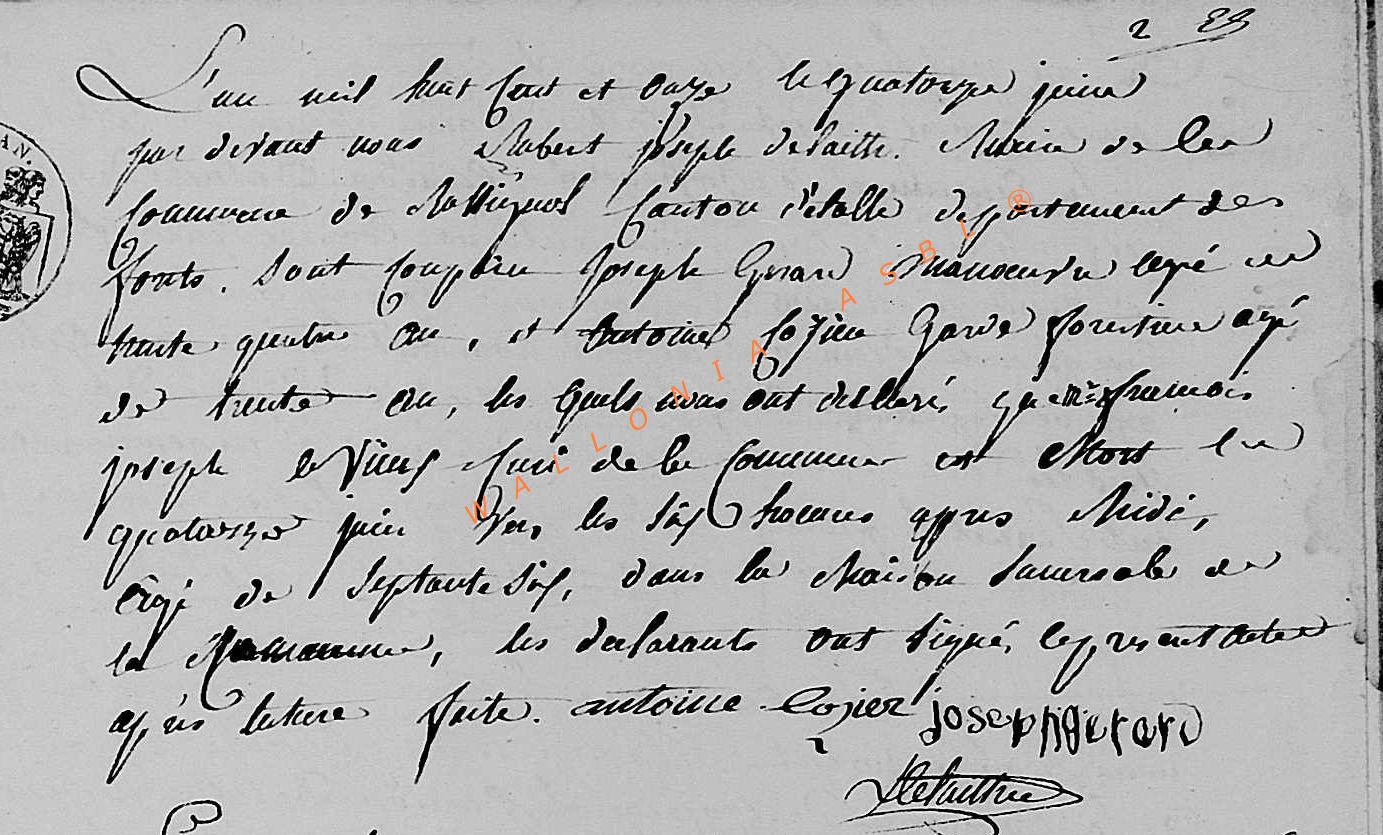 2 
L'an mil huit Cent et onze le quatorze juin
par devant nous Robert joseph delaitte. Maire de la
Commune de Rossignol Canton d'étalle departement des
forets. sont Comparu Joseph Girard Manoeuvre agé de
trente quatre an, et Antoine Cozier Garde forestier agé
de trente an, les quels nous ont declaré, que mr françois
joseph Curé de la Commune est Mort le
quatorze juin vers les six heures apres Midi,
agé de septante six, dans la Maison de
la Commune, les declarants ont signé, le present acte
après lecture faite. antoine Cozier joseph gerard
AN.
WALLONIA ASBL ®